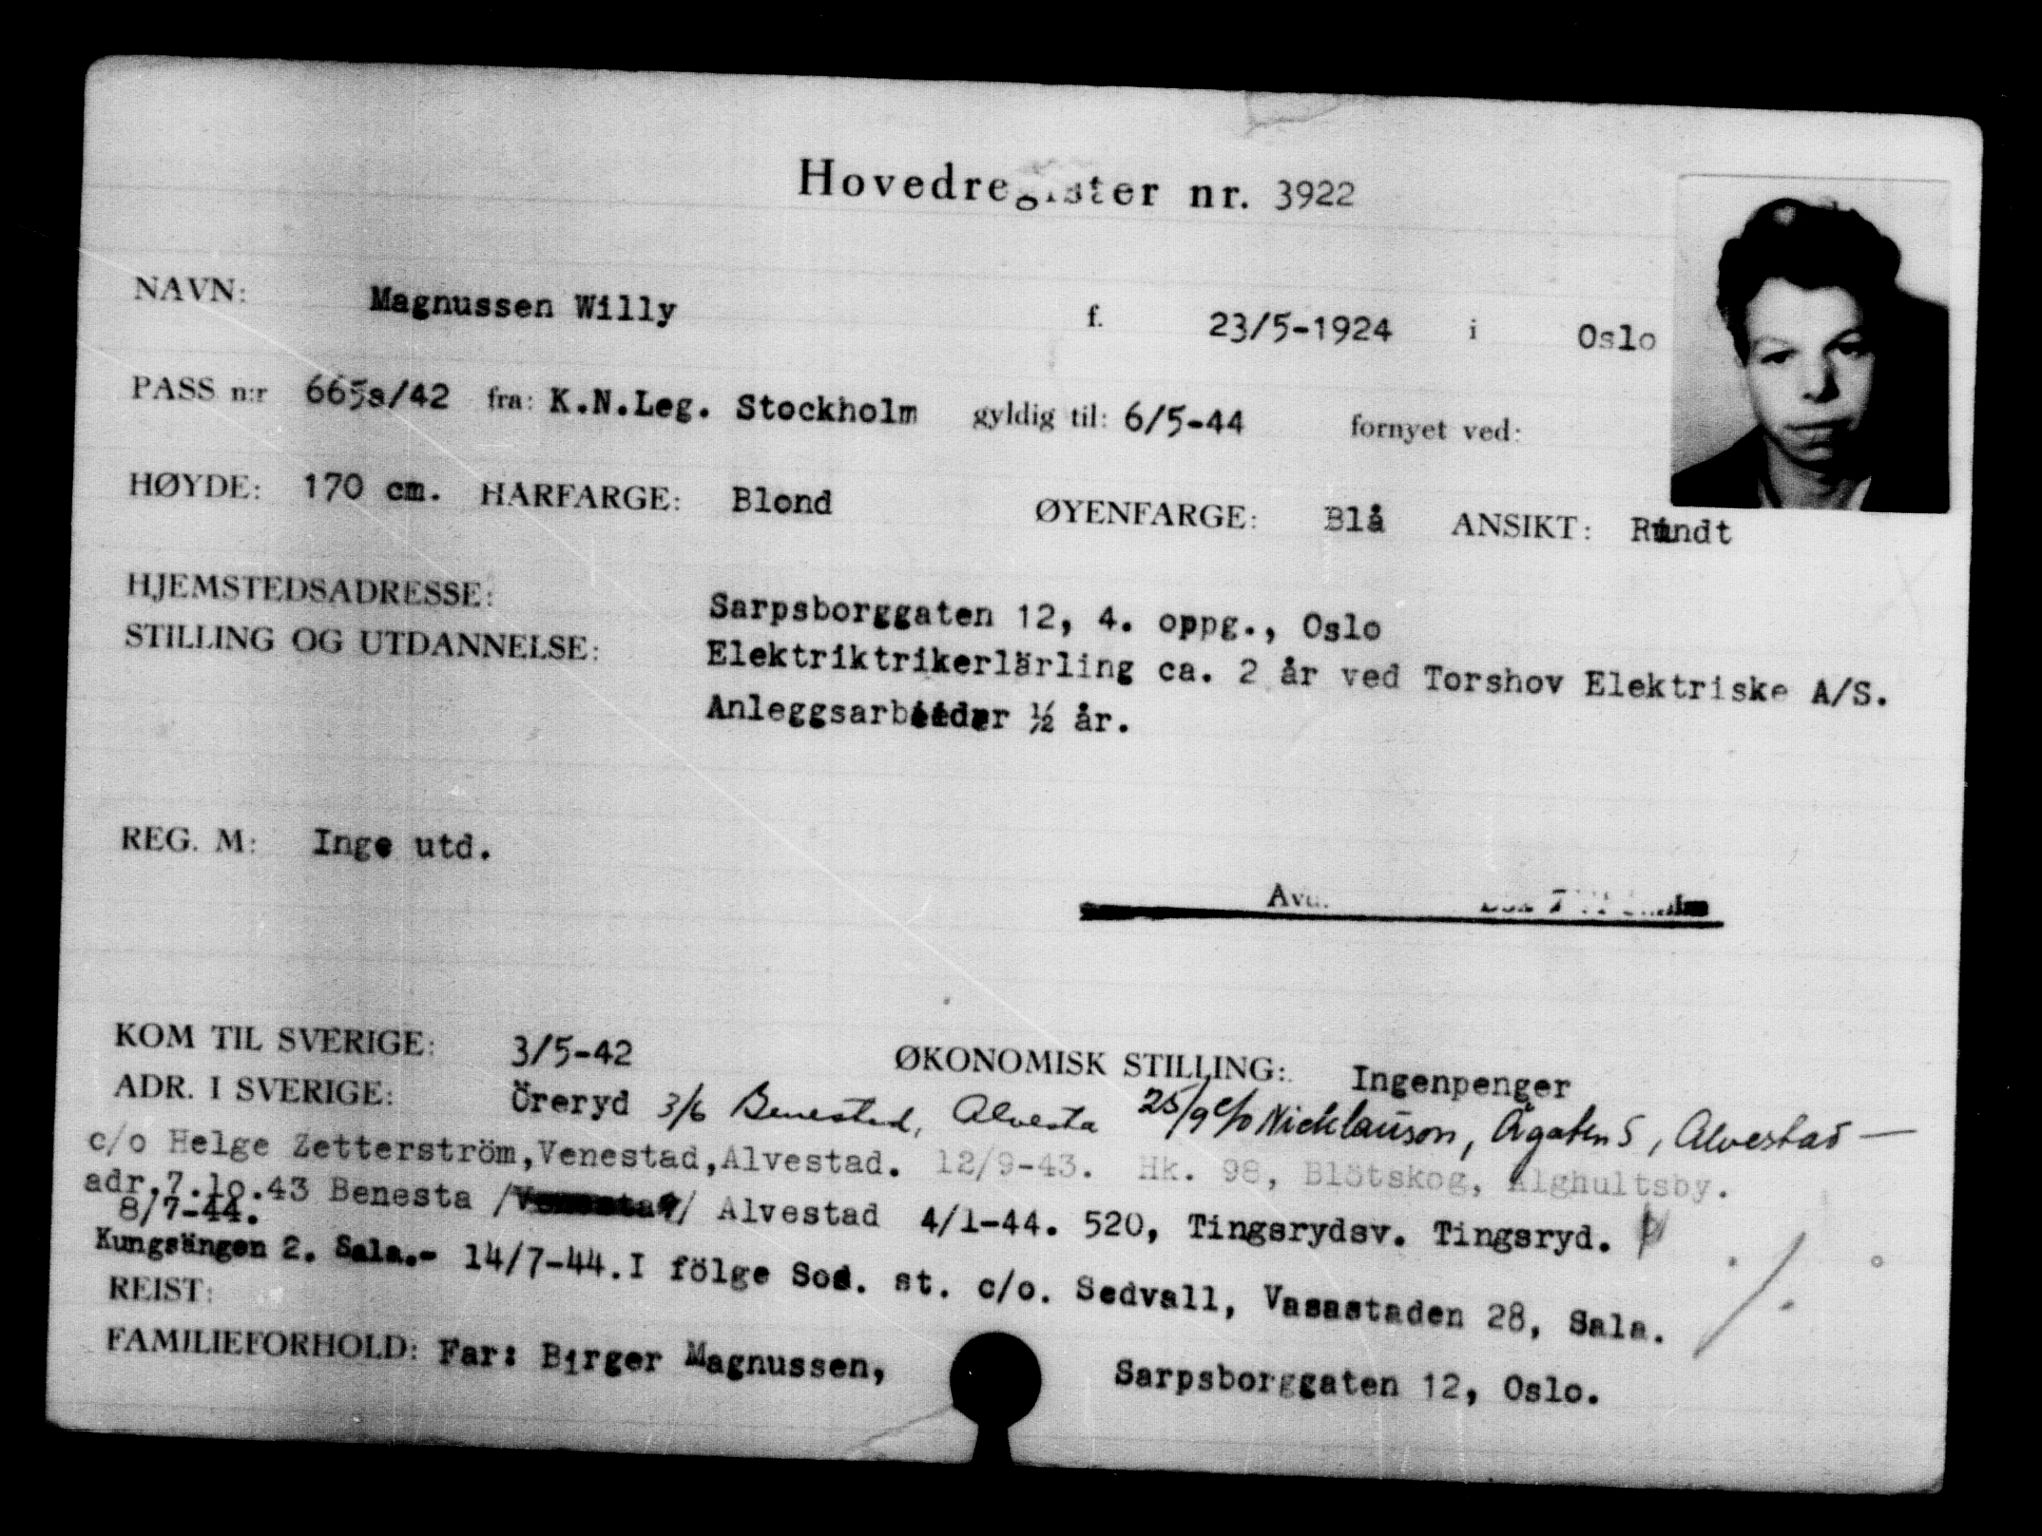 Hovedregister nr. 3922
NAVN: Magnussen Willy f. 23/5-1924 i Oslo
PASS n:r 665s/42 fra: K.N.Leg. Stockholm gyldig til: 6/5-44 fornyet ved:
HØYDE: 170 cm. HARFARGE: Blond ØYENFARGE: Blå ANSIKT: Rundt
HJEMSTEDSADRESSE: Sarpsborggaten 12, 4. oppg., Oslo
STILLING OG UTDANNELSE: Elektriktrikerlärling ca. 2 år ved Torshov Elektriske A/S.
Anleggsarbeider ½ år.
REG. M: Inge utd.
KOM TIL SVERIGE: 3/5-42 ØKONOMISK STILLING: Ingenpenger
ADR. I SVERIGE: Öreryd 3/6 Benestad, Alvesta 25/9 c/o Nicklauson, Ågaten 5, Alvestad —
c/o Helge Zetterström, Venestad, Alvestad. 12/9-43. Hk. 98, Blötskog, Älghultsby.
adr. 7.10.43 Benesta / / Alvestad 4/1-44. 520, Tingsrydsv. Tingsryd.
8/7-44.
Kungsängen 2. Sala.- 14/7-44. I fölge Sos. st. c/o. Sedvall, Vasastaden 28, Sala.
REIST:
FAMILIEFORHOLD: Far: Birger Magnussen, Sarpsborggaten 12, Oslo.